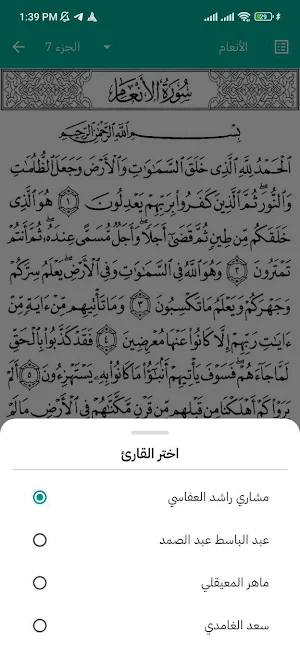 1:39 PM
الأنعام
الجزء 7
سُورَةُ الأَنْعَامِ
بِسْمِ اللَّهِ الرَّحْمَٰنِ الرَّحِيمِ
الْحَمْدُ لِلَّهِ الَّذِي خَلَقَ السَّمَاوَاتِ وَالْأَرْضَ وَجَعَلَ الظُّلُمَاتِ
وَالنُّورَ ۖ ثُمَّ الَّذِينَ كَفَرُوا بِرَبِّهِمْ يَعْدِلُونَ ١ هُوَ الَّذِي
خَلَقَكُم مِّن طِينٍ ثُمَّ قَضَىٰ أَجَلًا ۖ وَأَجَلٌ مُّسَمًّى عِندَهُ ۖ ثُمَّ أَنتُمْ
تَمْتَرُونَ ٢ وَهُوَ اللَّهُ فِي السَّمَاوَاتِ وَفِي الْأَرْضِ ۖ يَعْلَمُ سِرَّكُمْ
وَجَهْرَكُمْ وَيَعْلَمُ مَا تَكْسِبُونَ ٣ وَمَا تَأْتِيهِم مِّنْ ءَايَةٍ مِّنْ
ءَايَاتِ رَبِّهِمْ إِلَّا كَانُوا عَنْهَا مُعْرِضِينَ ٤ فَقَدْ كَذَّبُوا بِالْحَقِّ
لَمَّا جَاءَهُمْ ۖ فَسَوْفَ يَأْتِيهِمْ أَنبَاءُ مَا كَانُوا بِهِ يَسْتَهْزِءُونَ ٥ أَلَمْ
يَرَوْا كَمْ أَهْلَكْنَا مِن قَبْلِهِم مِّن قَرْنٍ مَّكَّنَّاهُمْ فِي الْأَرْضِ مَا لَمْ
اختر القارئ
مشاري راشد العفاسي
عبد الباسط عبد الصمد
ماهر المعيقلي
سعد الغامدي